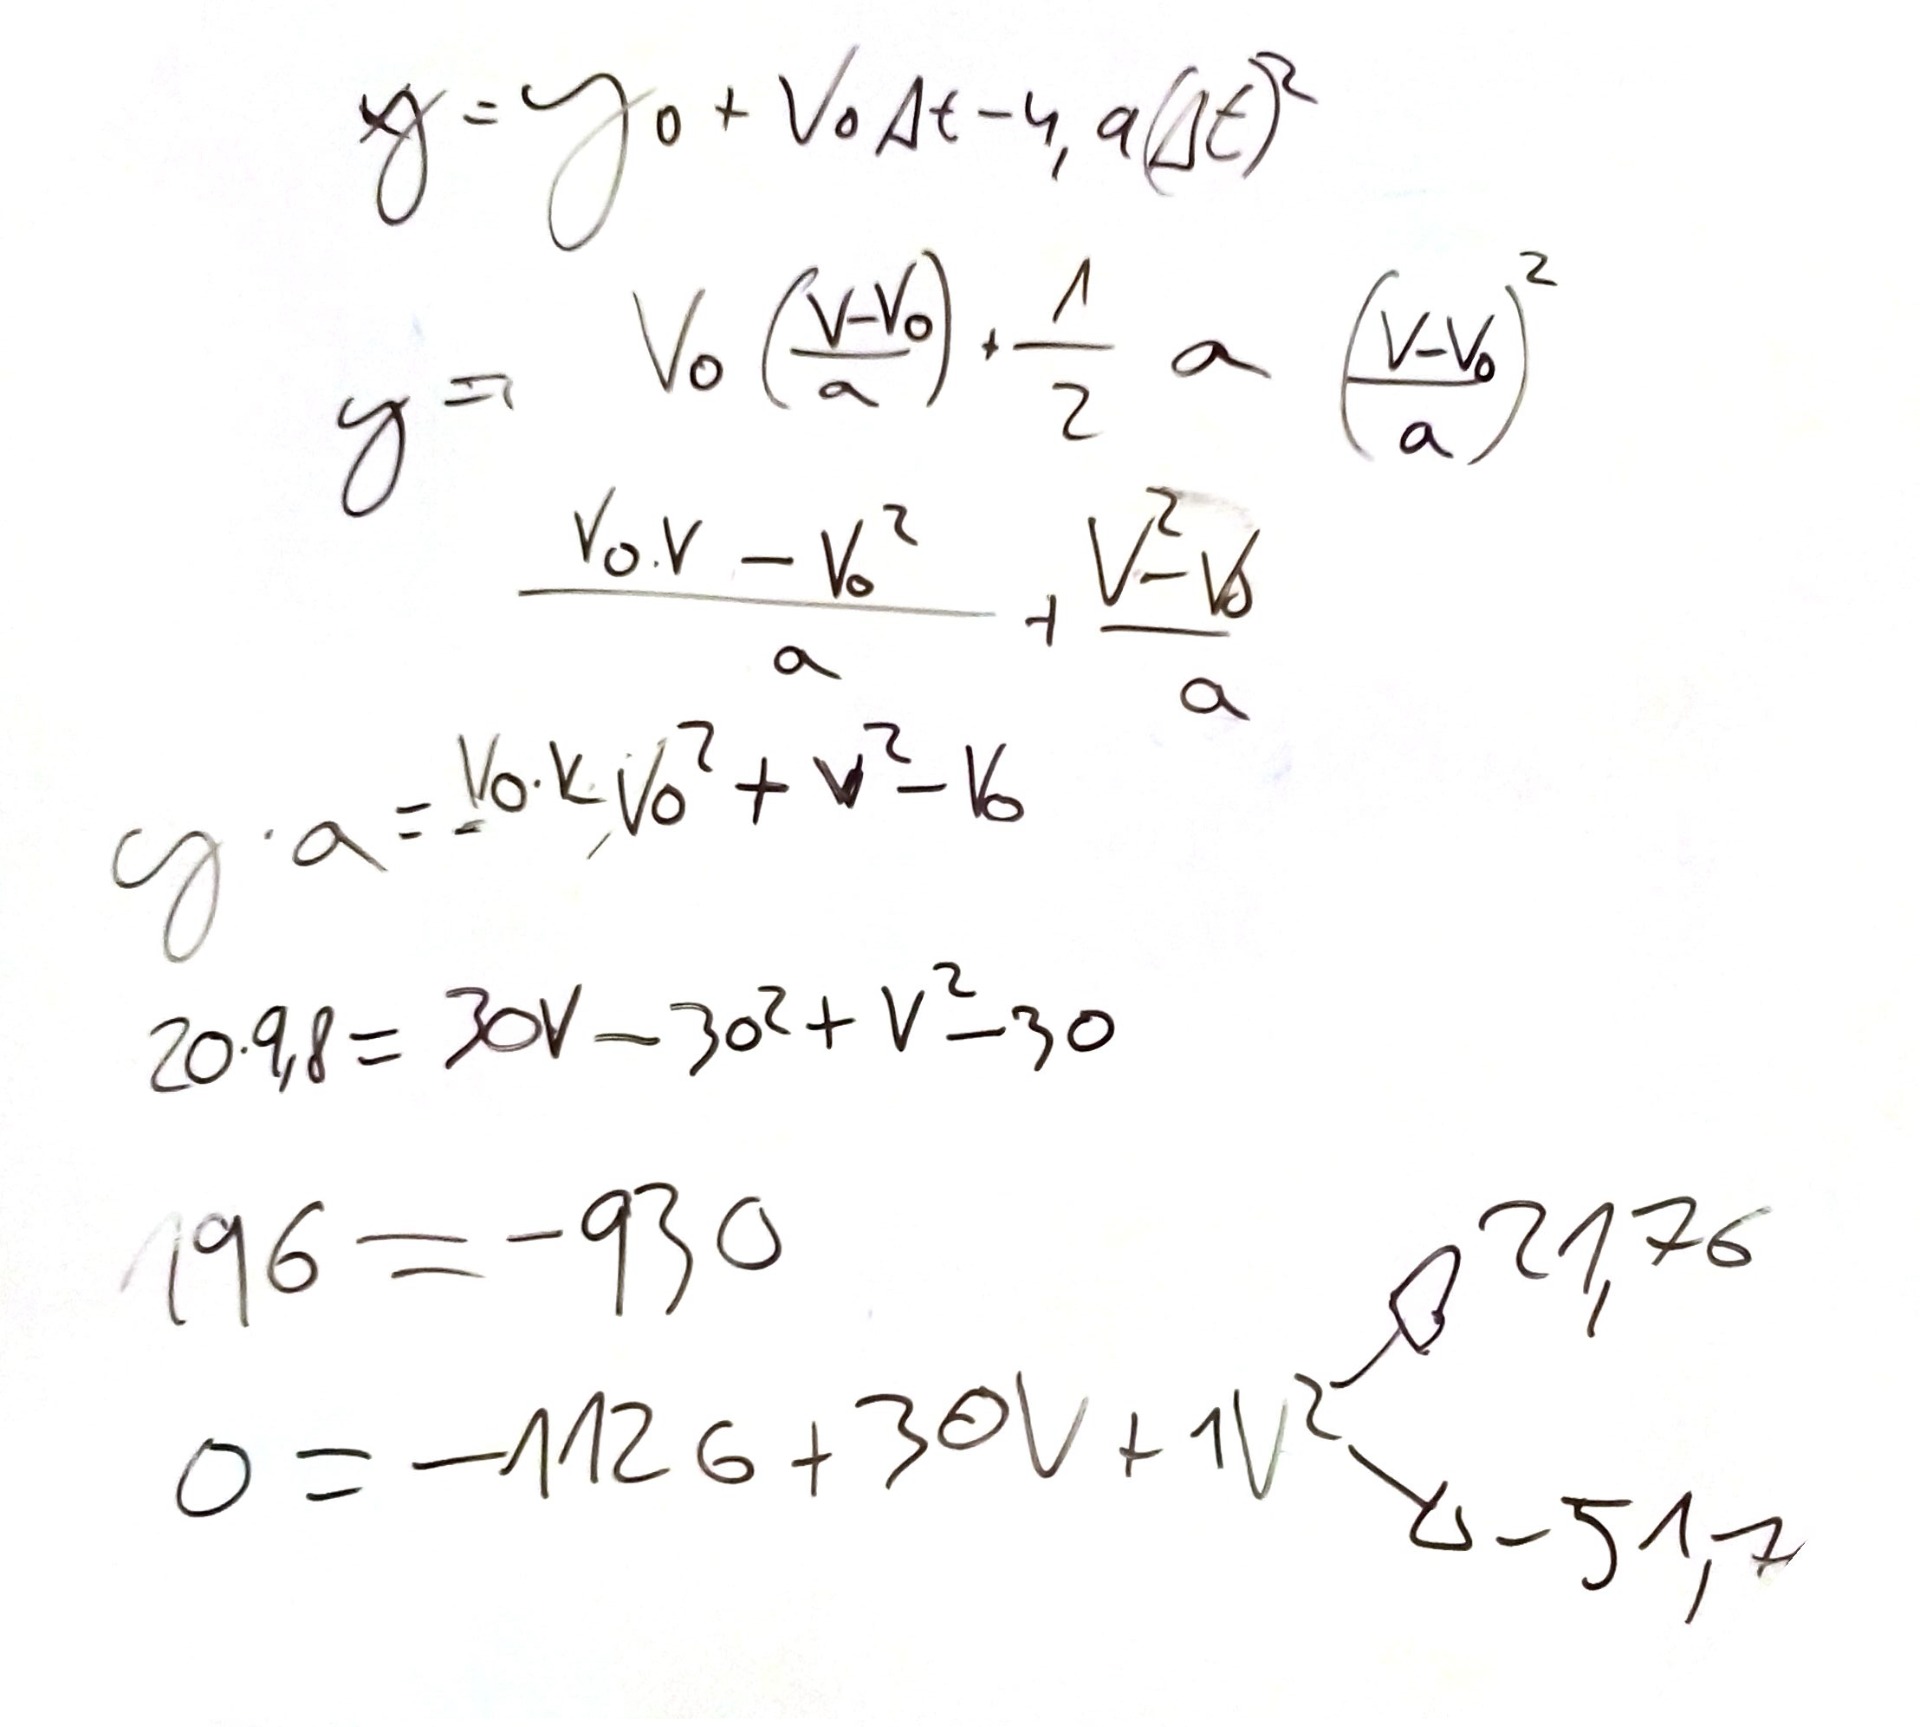 y = y₀ + V₀ Δt - 4, a(Δt)²
y = V₀ ((V-V₀)/a) + 1/2 a ((V-V₀)/a)²
(V₀.V - V₀²)/a + (V²-V₀)/a
y · a = V₀·V - V₀² + V² - V₀
20·9,8 = 30V - 30² + V² - 30
196 = -930
21,76
0 = -1126 + 30V + 1V²
-51,7